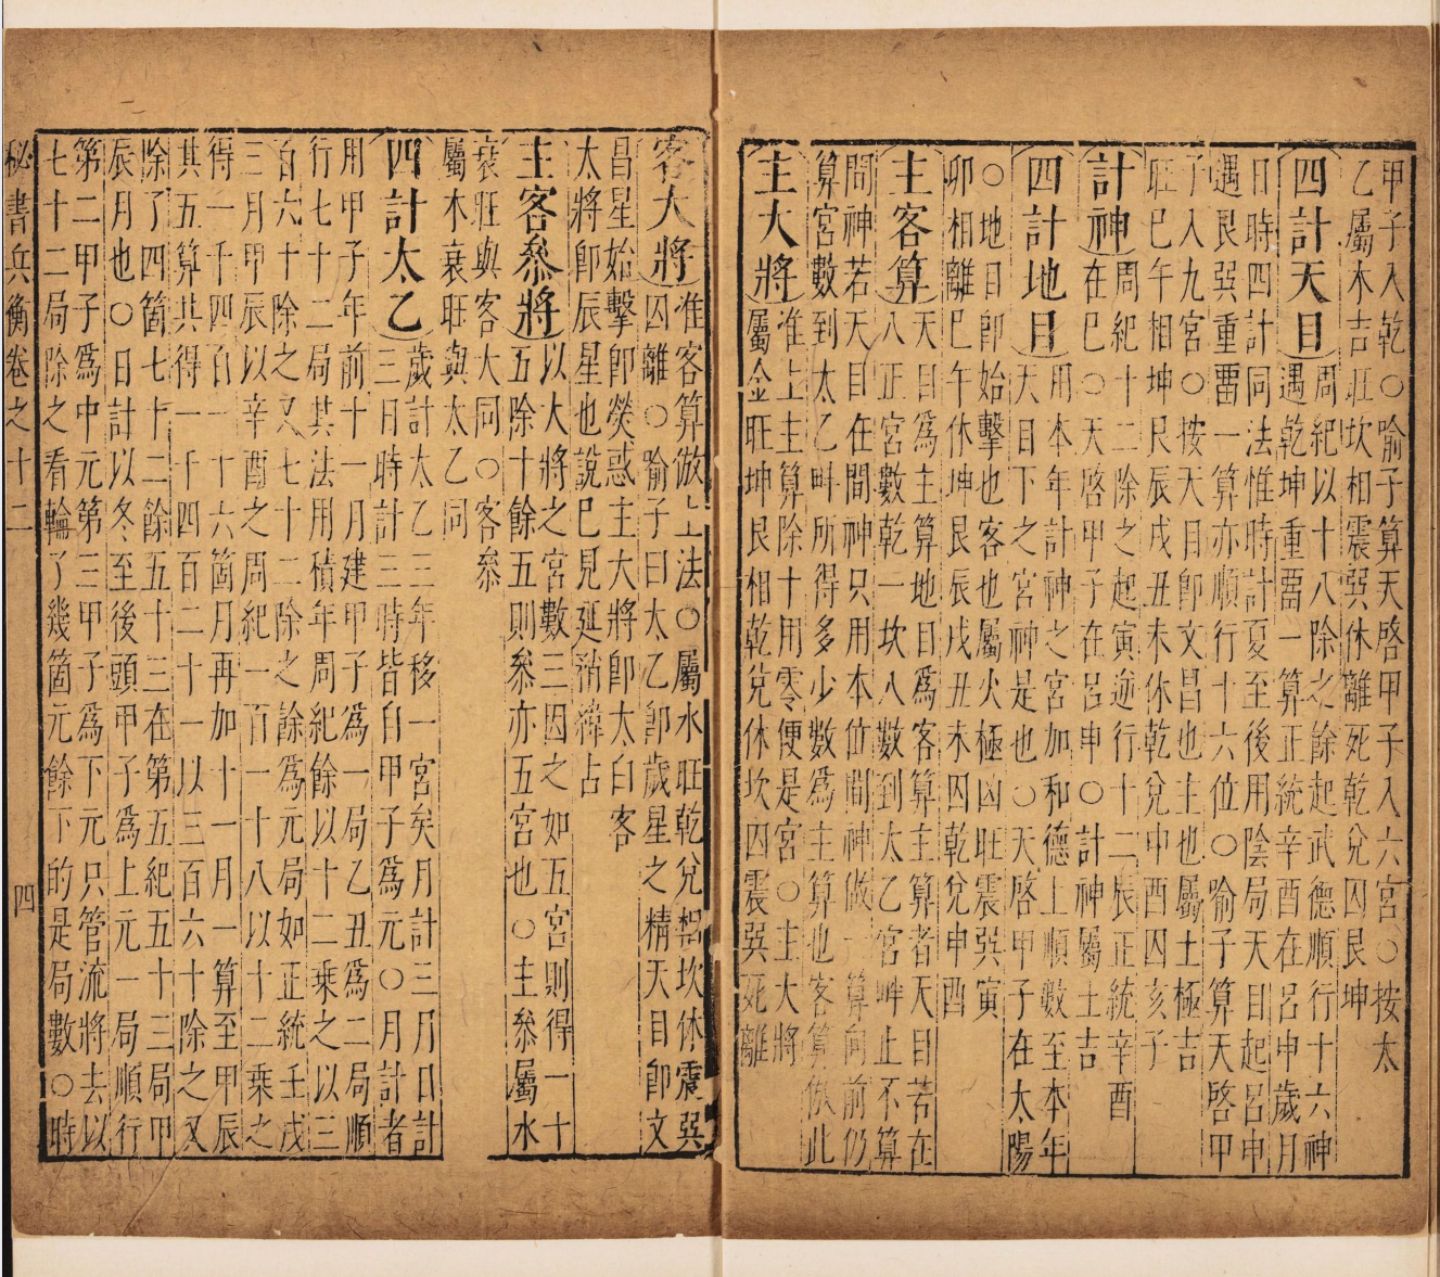 甲子入乾○喻子算天啓甲子入六宮○按太
乙屬木吉旺坎相震巽休離死乾兌囚艮坤
四計天目
周紀以十八除之餘起武德順行十六神
遇乾坤重畱一算正統辛酉在呂申歲月
日時四計同法惟時計夏至後用陰局天目起呂申
遇艮巽重畱一算亦順行十六位○喻子算天啓甲
子入九宮○按天目卽文昌也主也屬土極吉
旺巳午相坤艮辰戌丑未休乾兌申酉囚亥子
計神
周紀十二除之起寅逆行十二辰正統辛酉
在巳○天啓甲子在呂申○計神屬土吉
四計地目
用本年計神之宮加和德上順數至本年
天目下之宮神是也○天啓甲子在太陽
○地目卽始擊也客也屬火極凶旺震巽寅
卯相離巳午休坤艮辰戌丑未囚乾兌申酉
主客算
天目爲主算地目爲客算主算者天目若在
八正宮數乾一坎八數到太乙宮衅止不算
問神若天目在間神只用本位間神做一算向前仍
算宮數到太乙衅所得多少數爲主算也客算倣此
主大將
准上主算除十用零便是宮○主大將
屬金旺坤艮相乾兌休坎囚震巽死離
客大將
准客算倣上法○屬水旺乾兌相坎休震巽
囚離○喻子曰太乙卽歲星之精天目卽文
昌星始擊卽熒惑主大將卽太白客
太將卽辰星也說已見延緯占
主客叅將
以大將之宮數三因之如五宮則得一十
五除十餘五則叅亦五宮也○主叅屬水
衰旺與客大同○客叅
屬木衰旺與太乙同
四計太乙
歲計太乙三年移一宮矣月計三月日計
三日時計三時皆自甲子爲元○月計者
用甲子年前十一月建甲子爲一局乙丑爲二局順
行七十二局其法用積年周紀餘以十二乘之以三
百六十除之又七十二除之餘爲元局如正統壬戌
三月甲辰以辛酉之周紀一百一十八以十二乘之
得一千四百一十六箇月再加十一月一算至甲辰
其五算共得一千四百二十一以三百六十除之又
除了四箇七十二餘五十三在第五紀五十三局甲
辰月也○日計以冬至後頭甲子爲上元一局順行
第二甲子爲中元第三甲子爲下元只管流將去以
七十二局除之看輪了幾箇元餘下的是局數○時
秘書兵衡卷之十二 四